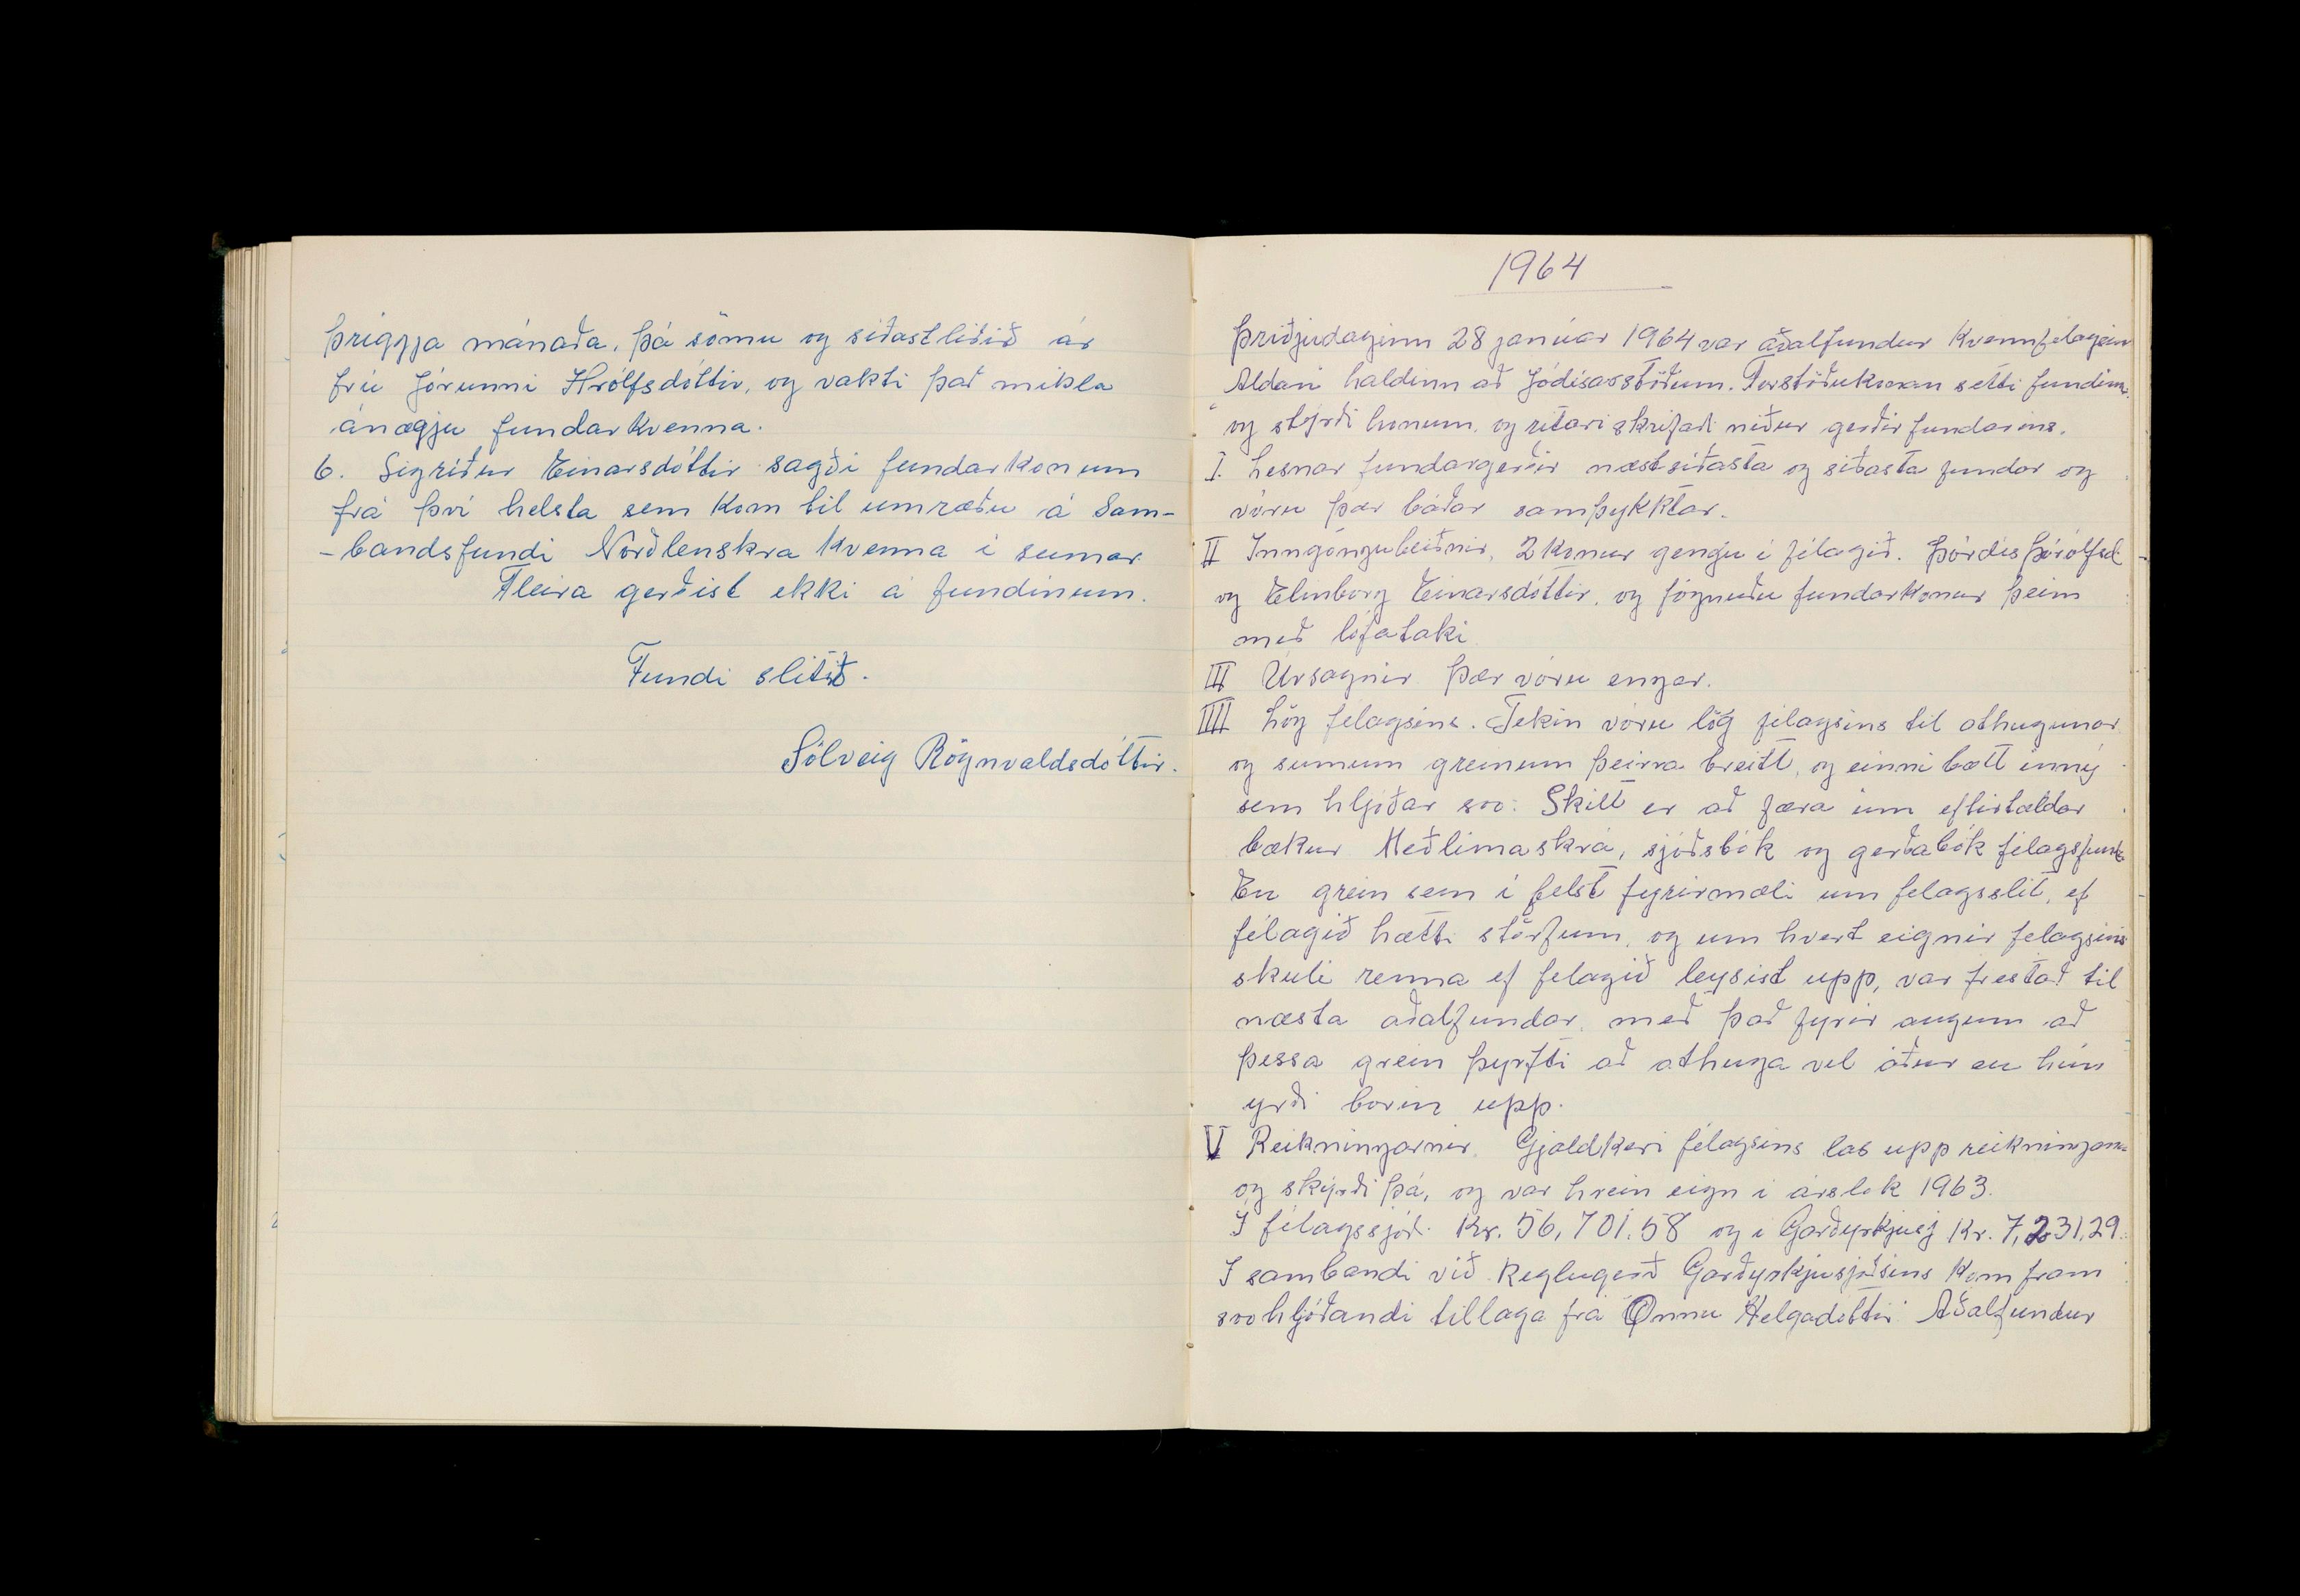 þriggja mánaða, þá sömu og síðastliðið ár
frú Jórunni Hrólfsdóttir, og vakti það mikla
ánægju fundarkvenna.
6. Sigríður Einarsdóttir sagði fundarkonum
frá því helsta sem kom til umræðu á Sam-
-bandsfundi Norðlenskra kvenna í sumar
Fleira gerðist ekki á fundinum.
Fundi slitið.
Sólveig Rögnvaldsdóttir.
1964
Þriðjudaginn 28 janúar 1964 var aðalfundur Kvennfélagsin
Aldan haldinn að Jódísarstöðum. Forstöðukonan setti fundinn
og stýrði honum, og ritari skrifaði niður gerðir fundarins.
I. Lesnar fundargerðir næstsíðasta og síðasta fundar og
vóru þær báðar samþykktar.
II Inngöngubeiðnir, 2 konur gengu í félagið. Þórdís Þórólfsd
og Elinborg Einarsdóttir, og fögnuðu fundarkonur þeim
með lófataki
III Úrsagnir þær vóru engar.
IIII Lög félagsins. Tekin vóru lög félagsins til athugunar
og sumum greinum þeirra breitt, og einni bætt inný
sem hljóðar svo: Skilt er að færa inn eftirtaldar
bækur Meðlimaskrá, sjóðsbók og gerðabók félagsfunda
En grein sem í felst fyrirmæli um felagsslit, ef
félagið hætti störfum, og um hvert eignir felagsins
skuli renna ef felagið leysist upp, var frestað til
næsta aðalfundar, með það fyrir augum að
þessa grein þyrfti að athuga vel áður en hún
yrði borin upp.
V Reikningarnir. Gjaldkeri félagsins las upp reikningana
og skýrði þá, og var hrein eign í árslok 1963.
Í félagssjóð. Kr. 56,701.58 og í Garðyrkjusj Kr. 7,231,29.
Í sambandi við Reglugerð Garðyrkjusjóðsins kom fram
svohljóðandi tillaga frá Önnu Helgadóttir Aðalfundur